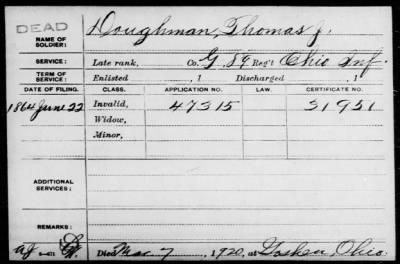 DEAD
NAME OF SOLDIER: Doughman, Thomas J.
SERVICE: Late rank, Co. G 89 Reg't Ohio Inf.
TERM OF SERVICE: Enlisted , 1 Discharged , 1
DATE OF FILING. CLASS. APPLICATION NO. LAW. CERTIFICATE NO.
1864 June 22 Invalid, 47315 31951
Widow,
Minor,
ADDITIONAL SERVICES:
REMARKS:
Died Mar 7, 1920, at Goshen, Ohio